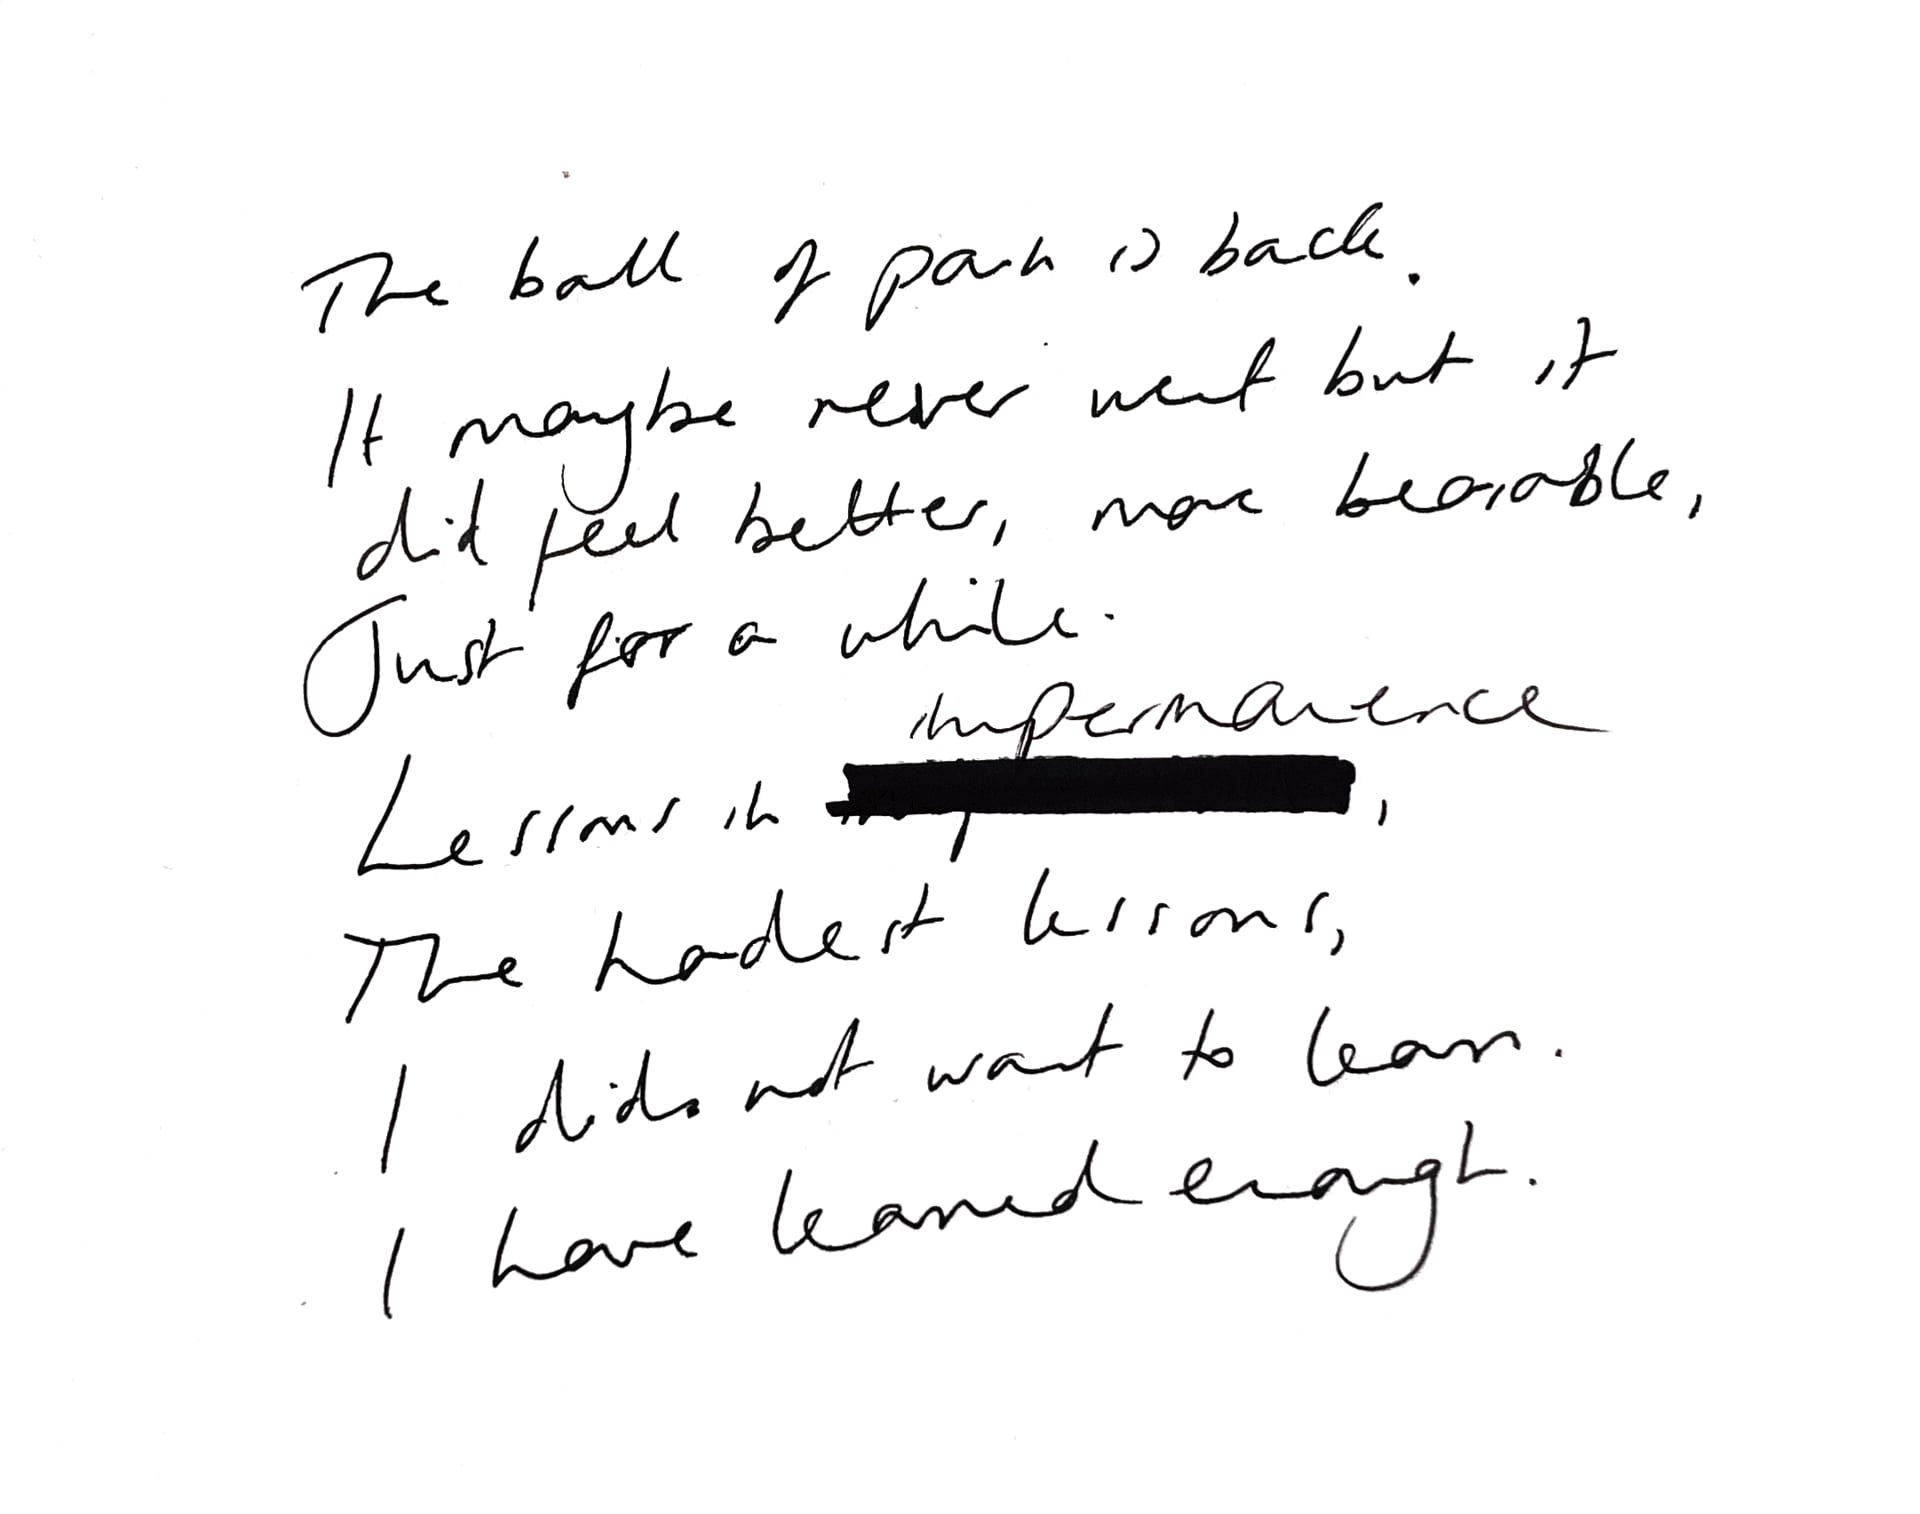 The ball of pain is back.
It maybe never went but it
did feel better, more bearable,
Just for a while.
impermanence
Lessons in ,
The hardest lessons,
I did not want to learn.
I have learned enough.